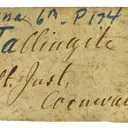 na 6A. P174
Tallingite
St. Just,
Cornwall